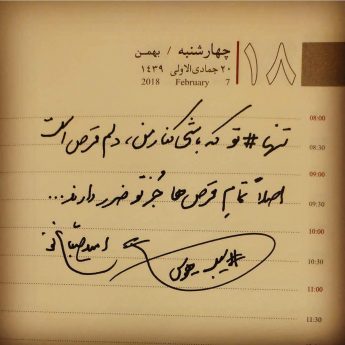 ۱۸
چهارشنبه / بهمن
۲۰ جمادی‌الاولی ۱۴۳۹
2018 February 7
08:00
تنها #تو که باشی کنار من، دلم قرص است
08:30
09:00
اصلاً تمامِ قرص ها جُز تو ضرر دارند...
09:30
10:00
امید صباغ نو
#لیبد
10:30
11:00
11:30